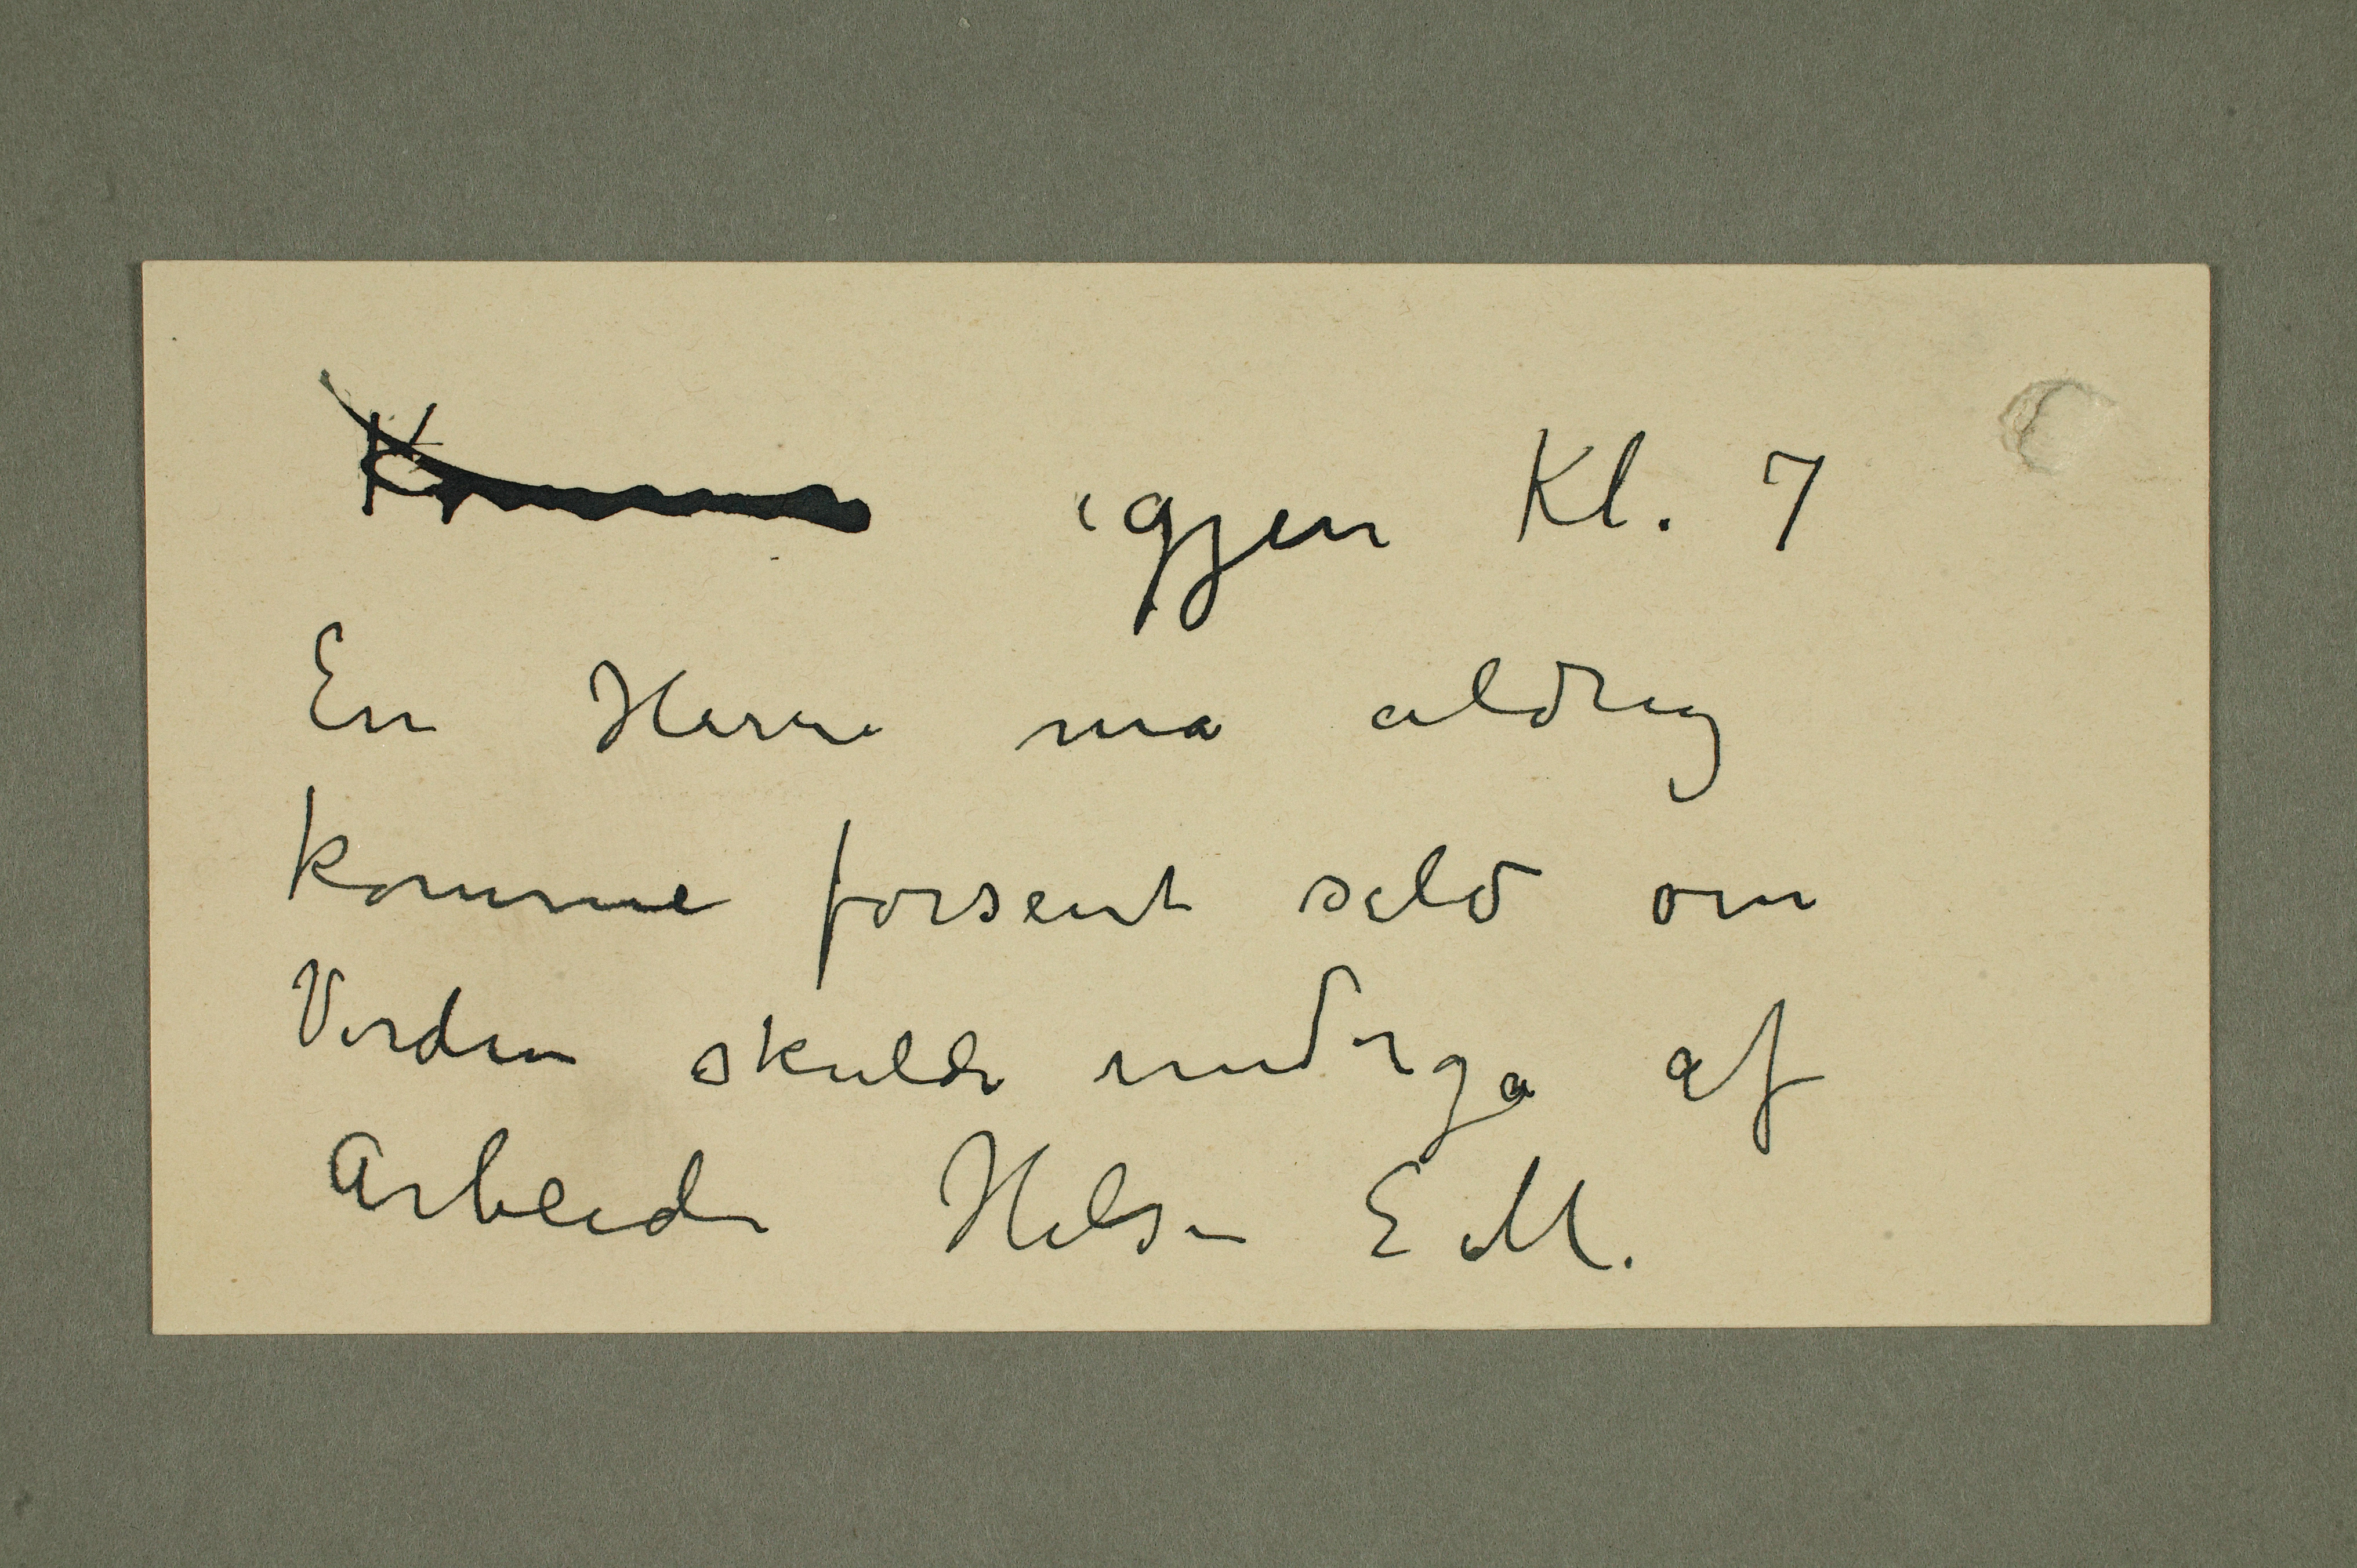 Kommer igjen Kl. 7
En Herre må aldrig
komme forsent selv om
Verden skulde undergå af
Arbeide Hilsen E M.